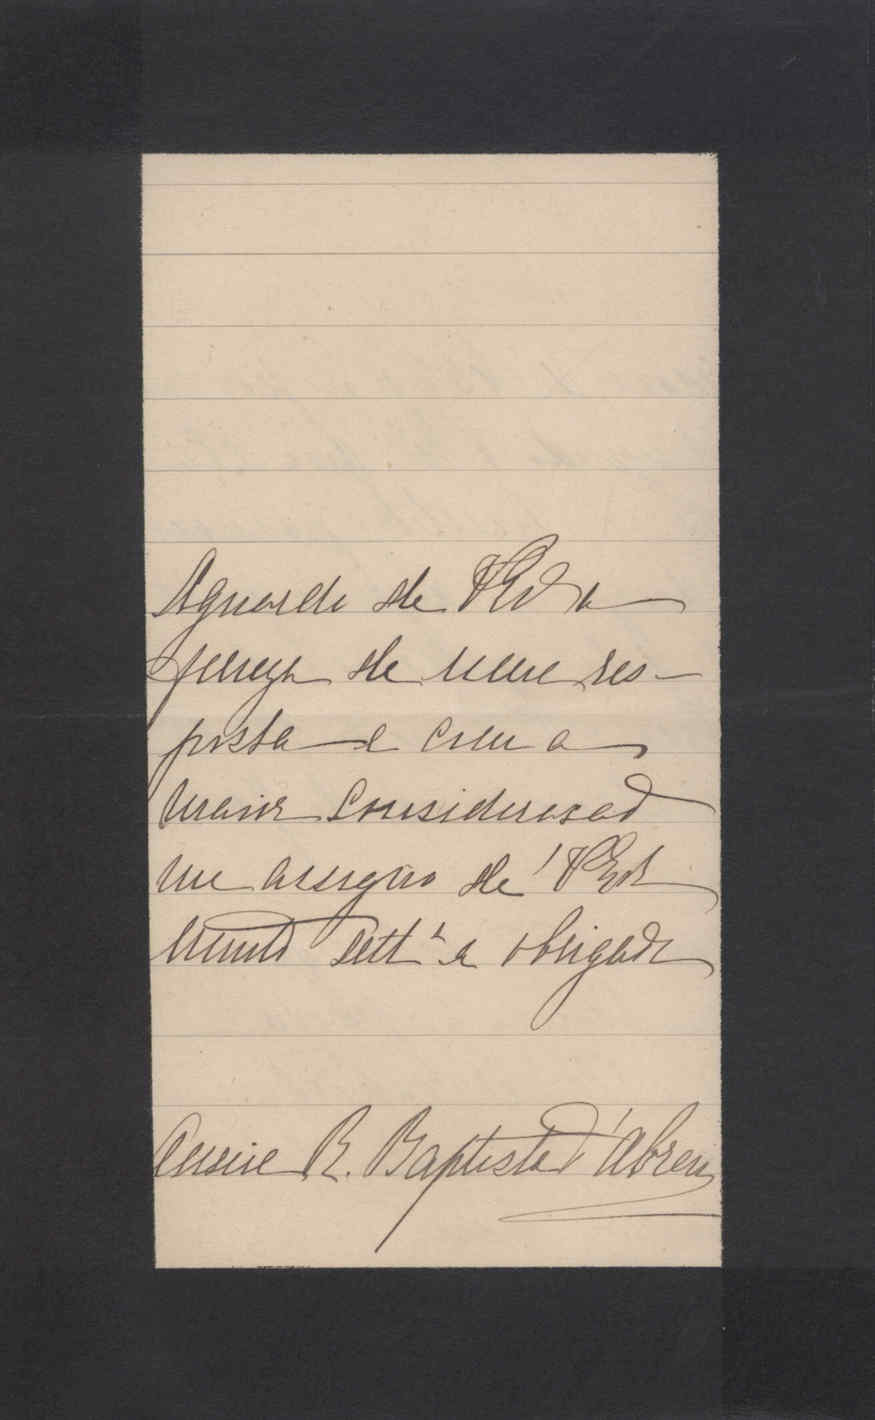 Aguardo de VExa a
fineza de uma res-
posta e com a
maior consideração
me assigno de VExa
Muito Att.ª e obrigada
Annie R. Baptista d'Abreu